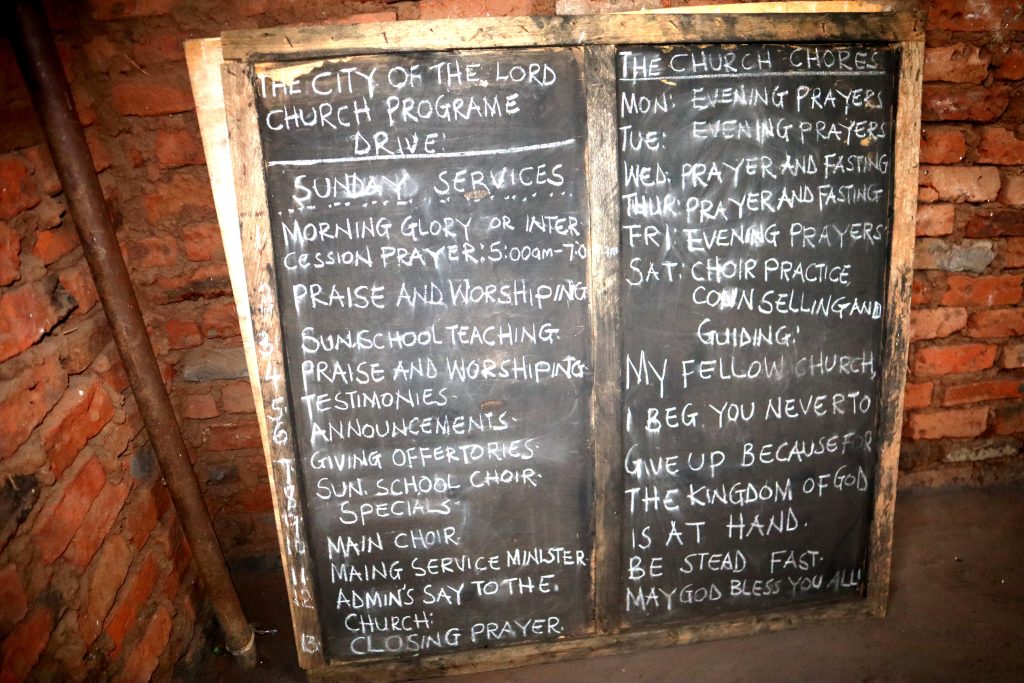 THE CITY OF THE LORD
CHURCH PROGRAME
DRIVE:
SUNDAY SERVICES
1 MORNING GLORY OR INTER-
CESSION PRAYER: 5:00am-7:00am
2 PRAISE AND WORSHIPING
3 SUN. SCHOOL TEACHING.
4 PRAISE AND WORSHIPING.
5 TESTIMONIES.
6 ANNOUNCEMENTS.
7 GIVING OFFERTORIES.
8 SUN. SCHOOL CHOIR.
9 SPECIALS.
10 MAIN CHOIR.
11 MAING SERVICE MINISTER.
12 ADMIN'S SAY TO THE.
CHURCH:
13. CLOSING PRAYER.
THE CHURCH CHORES
MON: EVENING PRAYERS
TUE: EVENING PRAYERS
WED: PRAYER AND FASTING
THUR: PRAYER AND FASTING
FRI: EVENING PRAYERS.
SAT: CHOIR PRACTICE,
CONNSELLING AND
GUIDING:
MY FELLOW CHURCH,
I BEG YOU NEVER TO
GIVE UP BECAUSE FOR
THE KINGDOM OF GOD
IS AT HAND.
BE STEAD FAST.
MAY GOD BLESS YOU ALL!